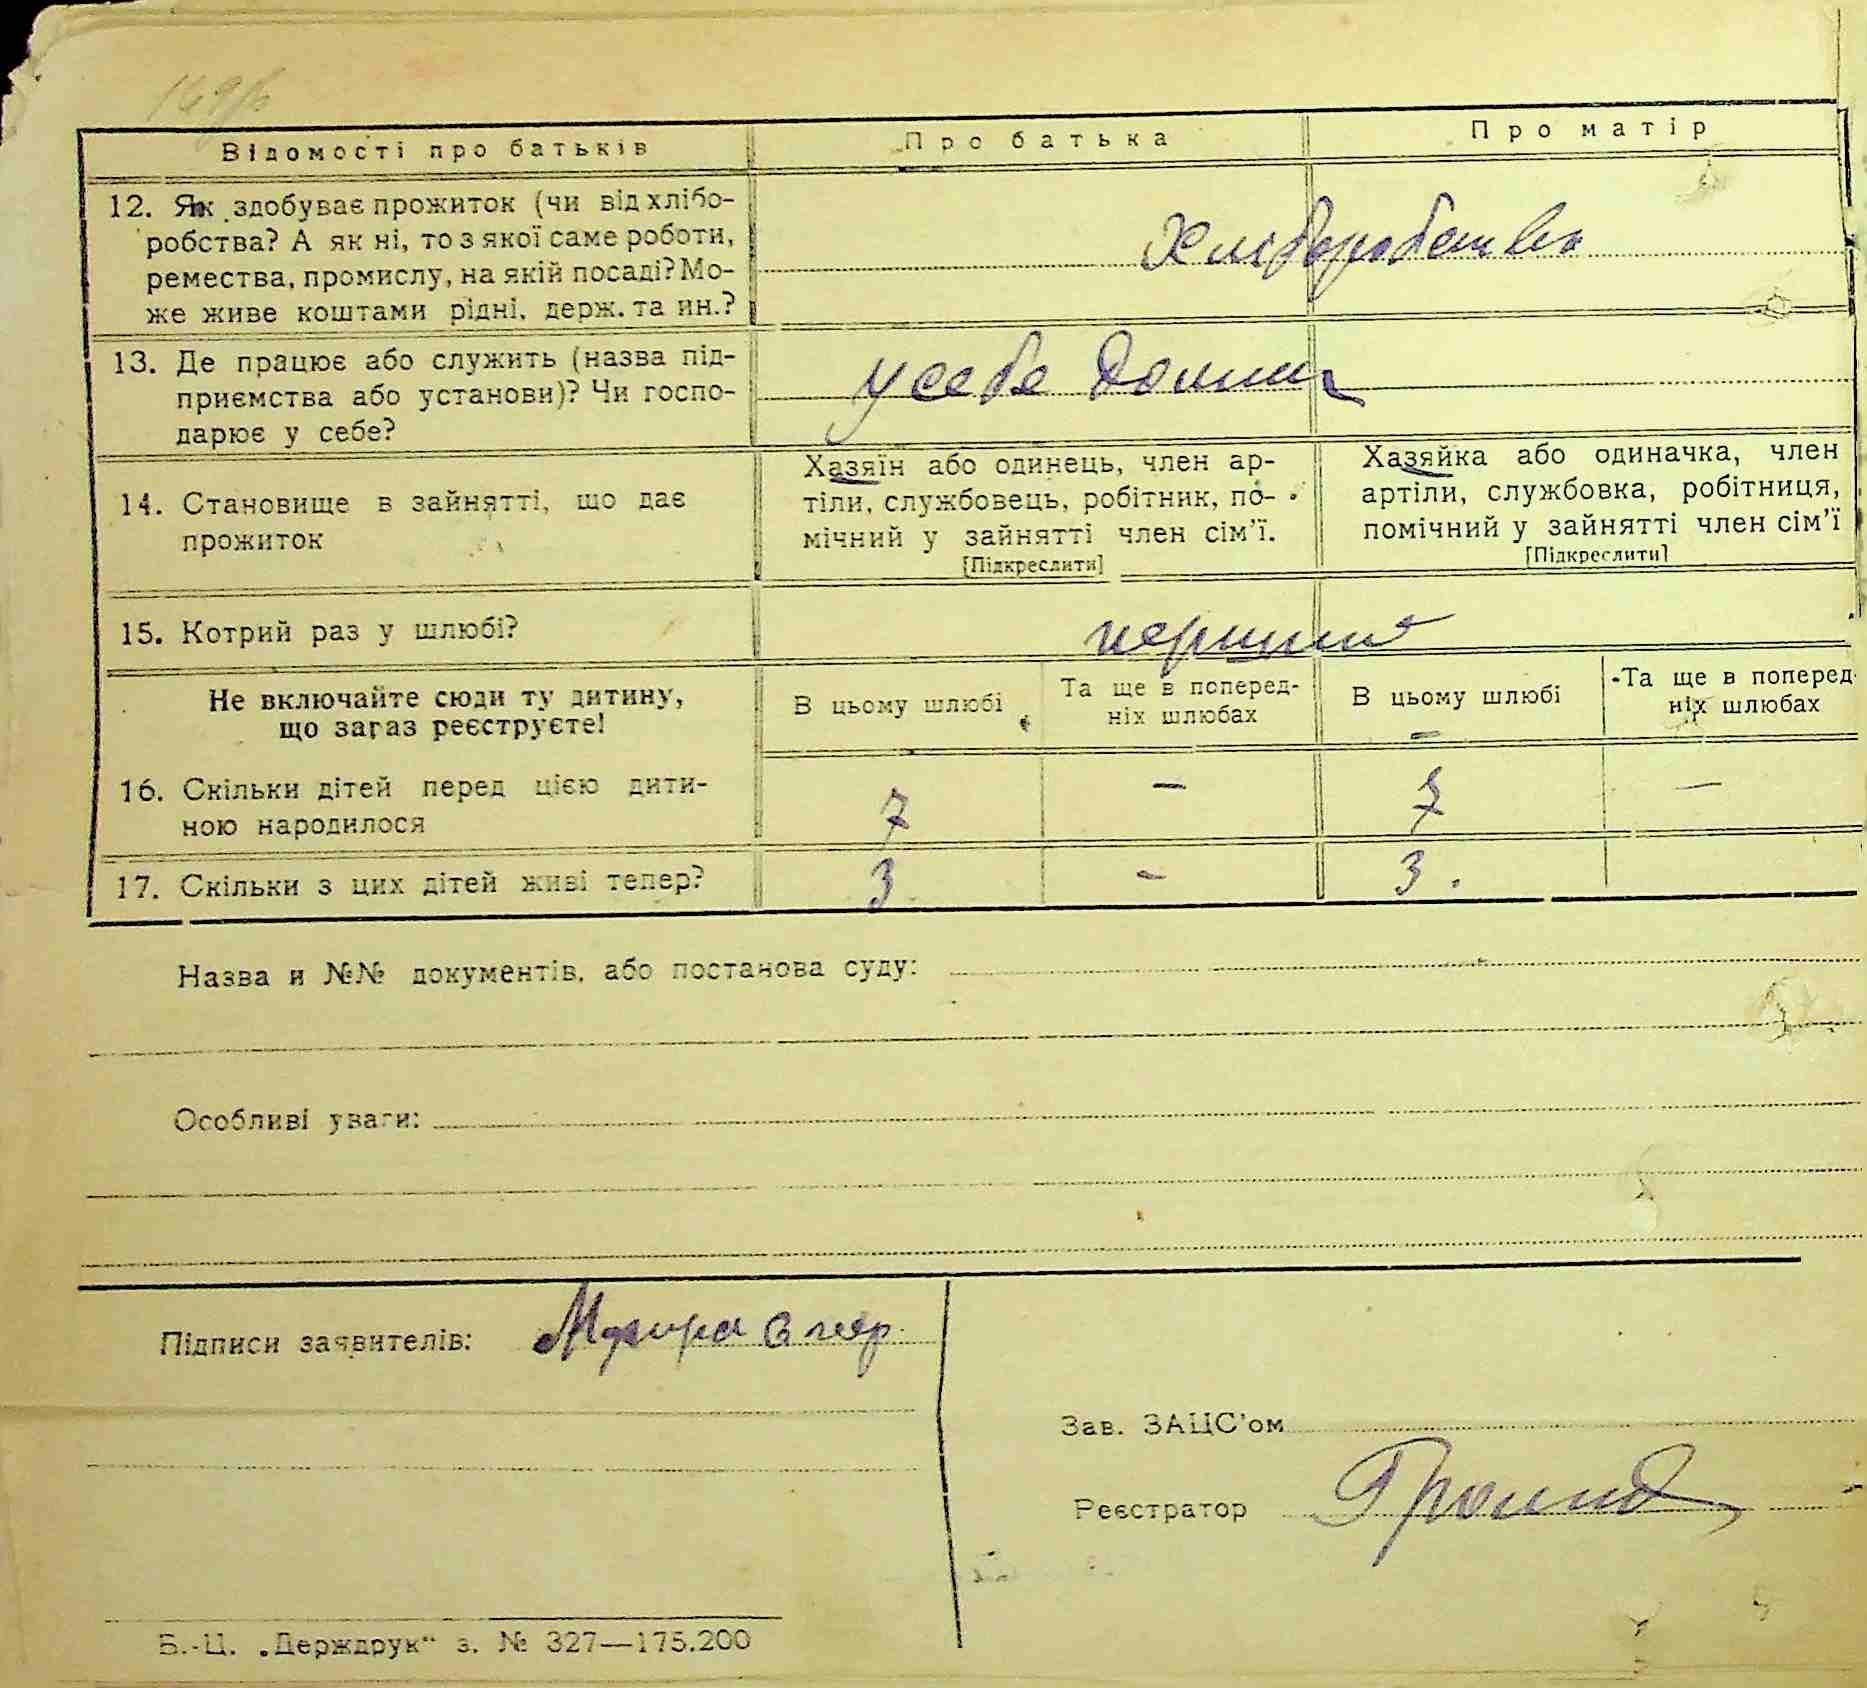 Відомості про батьків
Про батька
Про матір
12. Як здобуває прожиток (чи від хлібо-
робства? А як ні, то з якої саме роботи,
ремества, промислу, на якій посаді? Мо-
же живе коштами рідні, держ. та ин.?
Хліборобство
13. Де працює або служить (назва під-
приємства або установи)? Чи госпо-
дарює у себе?
у себе дома
14. Становище в зайнятті, що дає
прожиток
Хазяїн або одинець, член ар-
тіли, службовець, робітник, по-
мічний у зайнятті член сім'ї.
[Підкреслити]
Хазяйка або одиначка, член
артіли, службовка, робітниця,
помічний у зайнятті член сім'ї
[Підкреслити]
15. Котрий раз у шлюбі?
перший
Не включайте сюди ту дитину,
що зараз реєструєте!
В цьому шлюбі
Та ще в поперед-
ніх шлюбах
В цьому шлюбі
Та ще в поперед-
ніх шлюбах
16. Скільки дітей перед цією дити-
ною народилося
7 - 7 -
17. Скільки з цих дітей живі тепер?
3 - 3.
Назва и №№ документів, або постанова суду:
Особливі уваги:
Підписи заявителів:
Зав. ЗАЦС'ом
Реєстратор
Б.-Ц. „Держдрук" з. № 327—175.200